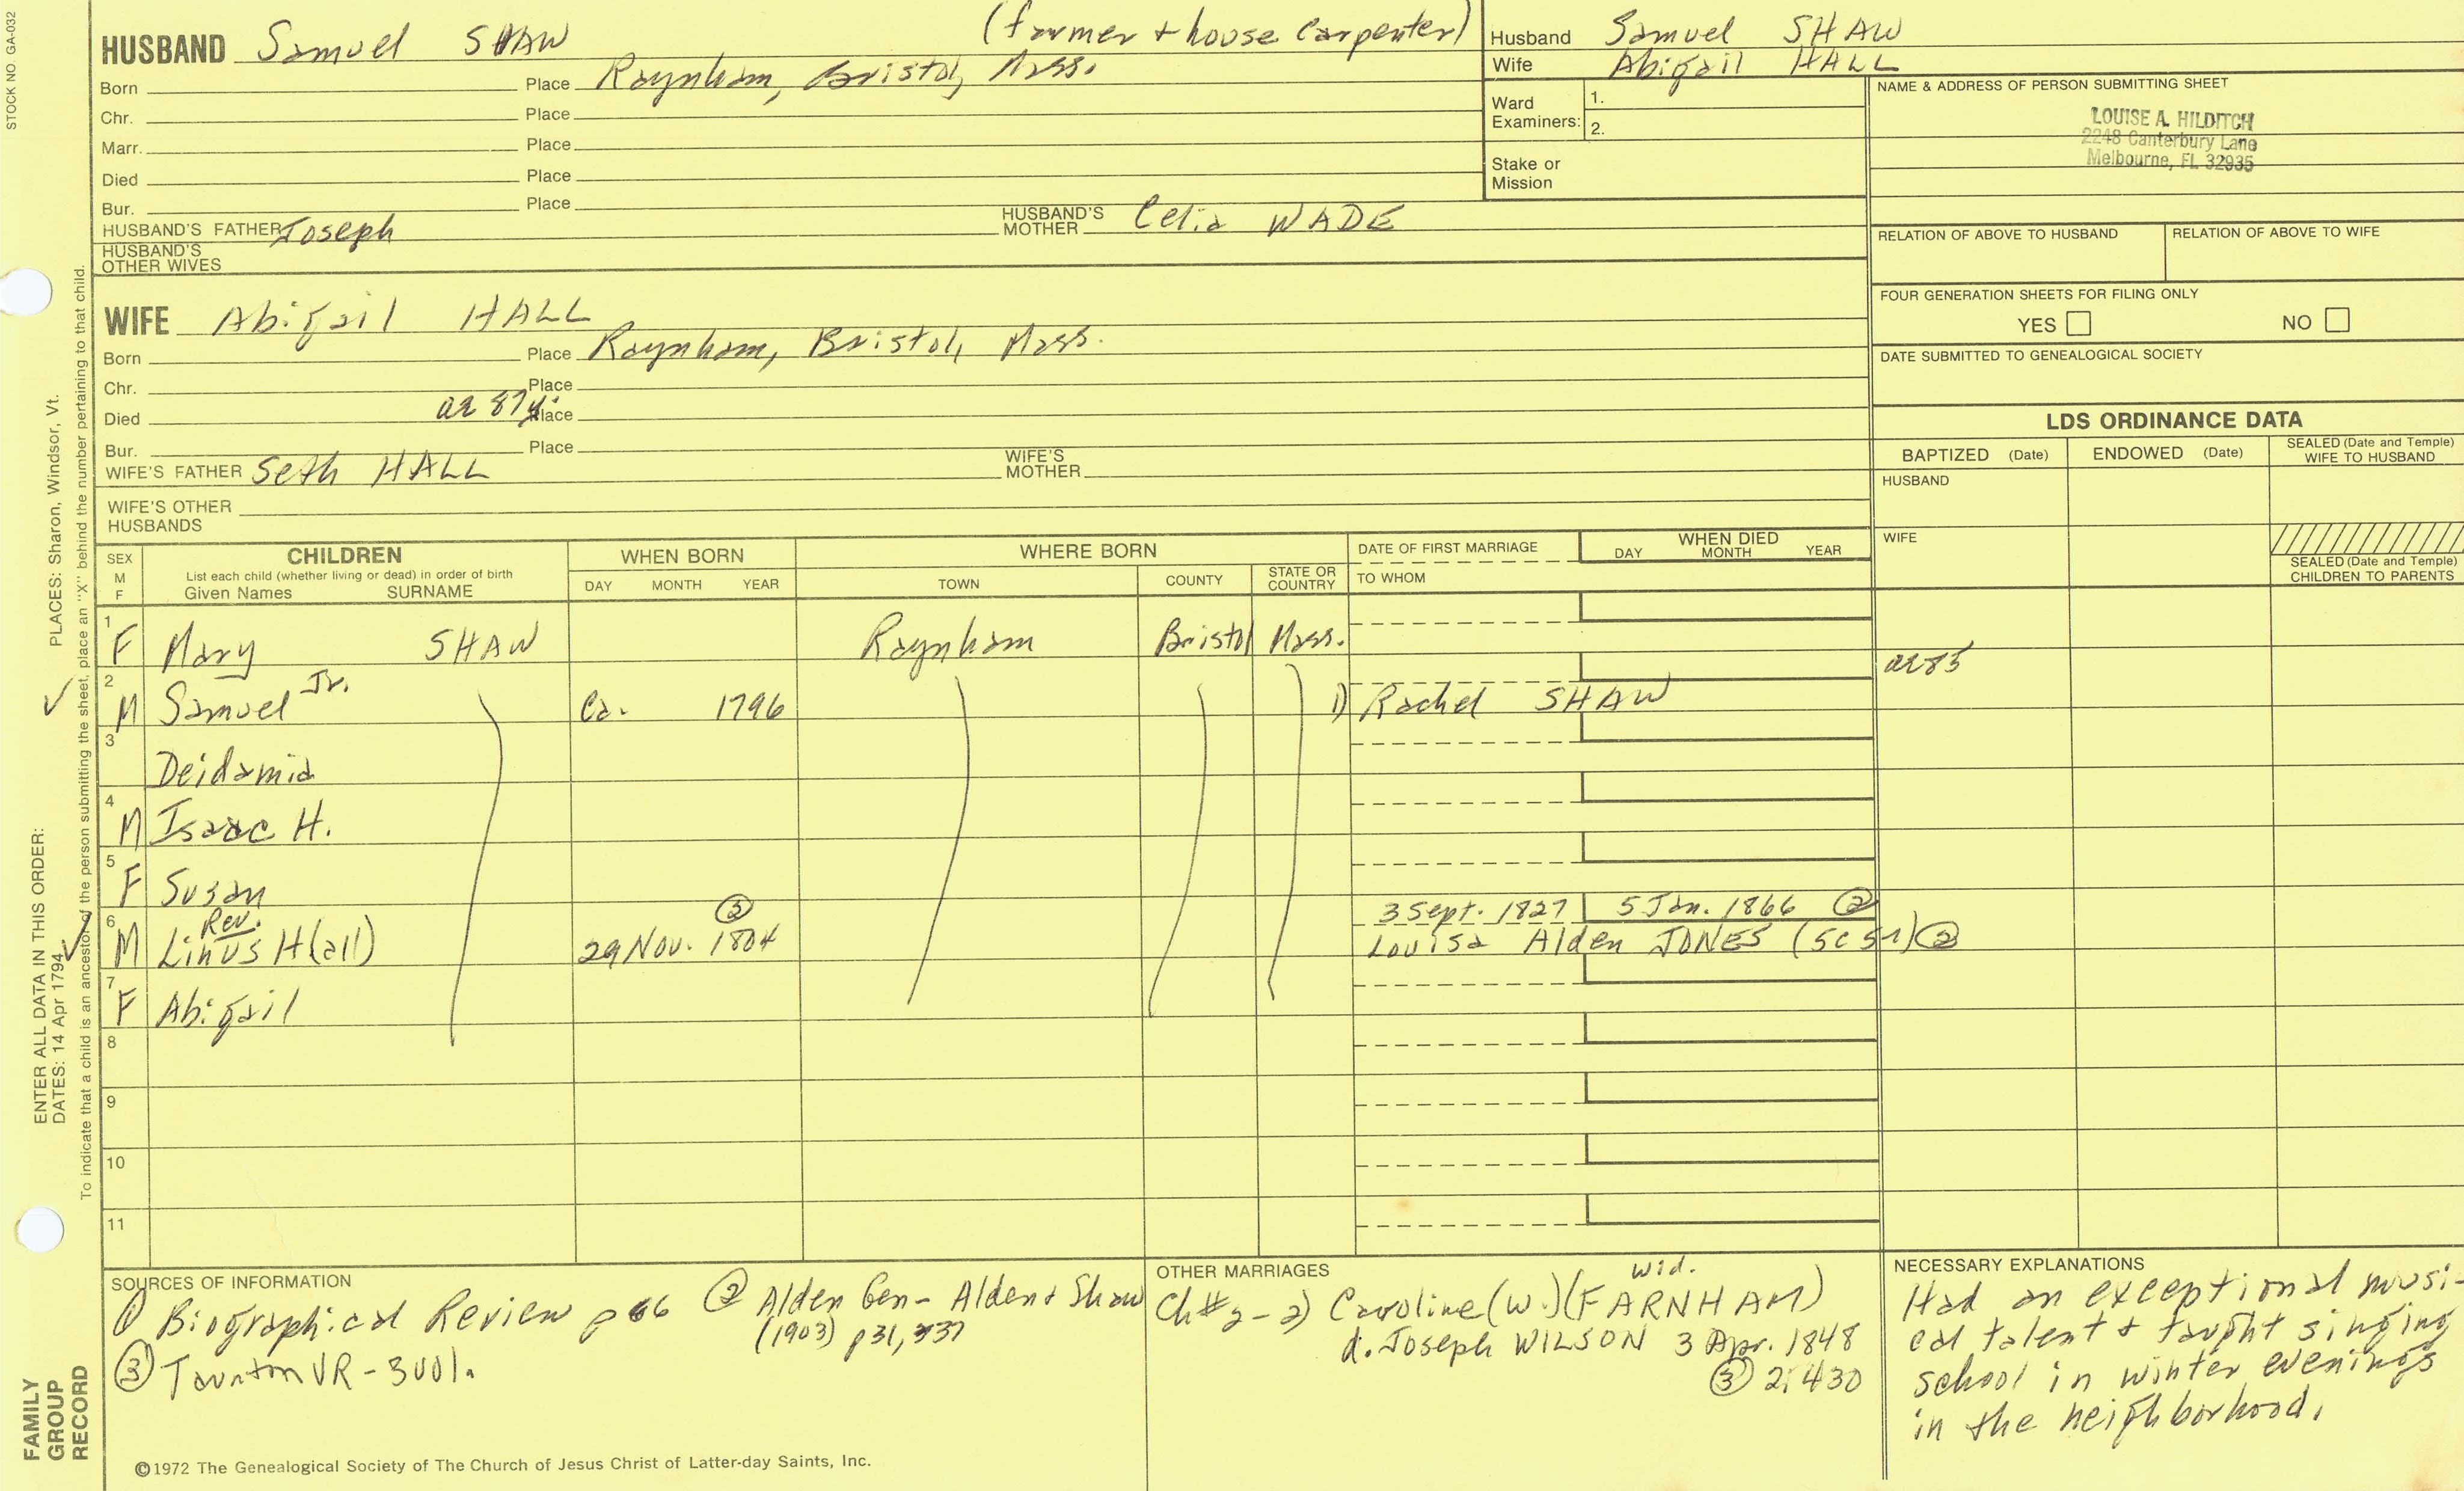 STOCK NO. GA-032
HUSBAND Samuel SHAW (farmer + house carpenter)
Born Place Raynham, Bristol, Mass.
Chr. Place
Marr. Place
Died Place
Bur. Place
HUSBAND'S FATHER Joseph HUSBAND'S MOTHER Celia WADE
HUSBAND'S OTHER WIVES
Husband Samuel SHAW
Wife Abigail HALL
Ward Examiners: 1.
2.
Stake or Mission
NAME & ADDRESS OF PERSON SUBMITTING SHEET
LOUISE A. HILDITCH
2248 Canterbury Lane
Melbourne, FL 32935
RELATION OF ABOVE TO HUSBAND RELATION OF ABOVE TO WIFE
FOUR GENERATION SHEETS FOR FILING ONLY
YES NO
DATE SUBMITTED TO GENEALOGICAL SOCIETY
WIFE Abigail HALL
Born Place Raynham, Bristol, Mass.
Chr. Place
Died ae 87y. Place
Bur. Place
WIFE'S FATHER Seth HALL WIFE'S MOTHER
WIFE'S OTHER HUSBANDS
LDS ORDINANCE DATA
BAPTIZED (Date) ENDOWED (Date) SEALED (Date and Temple) WIFE TO HUSBAND
HUSBAND
WIFE
SEALED (Date and Temple) CHILDREN TO PARENTS
SEX M F CHILDREN List each child (whether living or dead) in order of birth Given Names SURNAME
WHEN BORN DAY MONTH YEAR
WHERE BORN TOWN COUNTY STATE OR COUNTRY
DATE OF FIRST MARRIAGE TO WHOM
WHEN DIED DAY MONTH YEAR
1 F Mary SHAW Raynham Bristol Mass. ae 85
2 M Samuel Jr. Ca. 1796 1) Rachel SHAW
3 Deidamia
4 M Isaac H.
5 F Susan
6 M Rev. Linus H(all) 29 Nov. 1804 ③ 3 Sept. 1827 5 Jan. 1866 ②
Louisa Alden JONES ②
7 F Abigail
8
9
10
11
SOURCES OF INFORMATION
① Biographical Review p 66 ② Alden Gen - Alden + Shaw
(1903) p 31, 37
③ Taunton VR - 3 vol.
OTHER MARRIAGES
Ch #2 - 2) Caroline (W.) (FARNHAM) wid.
d. Joseph WILSON 3 Apr. 1848
③ 2:430
NECESSARY EXPLANATIONS
Had an exceptional musi-
cal talent + taught singing
school in winter evenings
in the neighborhood.
©1972 The Genealogical Society of The Church of Jesus Christ of Latter-day Saints, Inc.
FAMILY GROUP RECORD
ENTER ALL DATA IN THIS ORDER: PLACES: Sharon, Windsor, Vt.
DATES: 14 Apr 1794
To indicate that a child is an ancestor of the person submitting the sheet, place an "X" behind the number pertaining to that child.